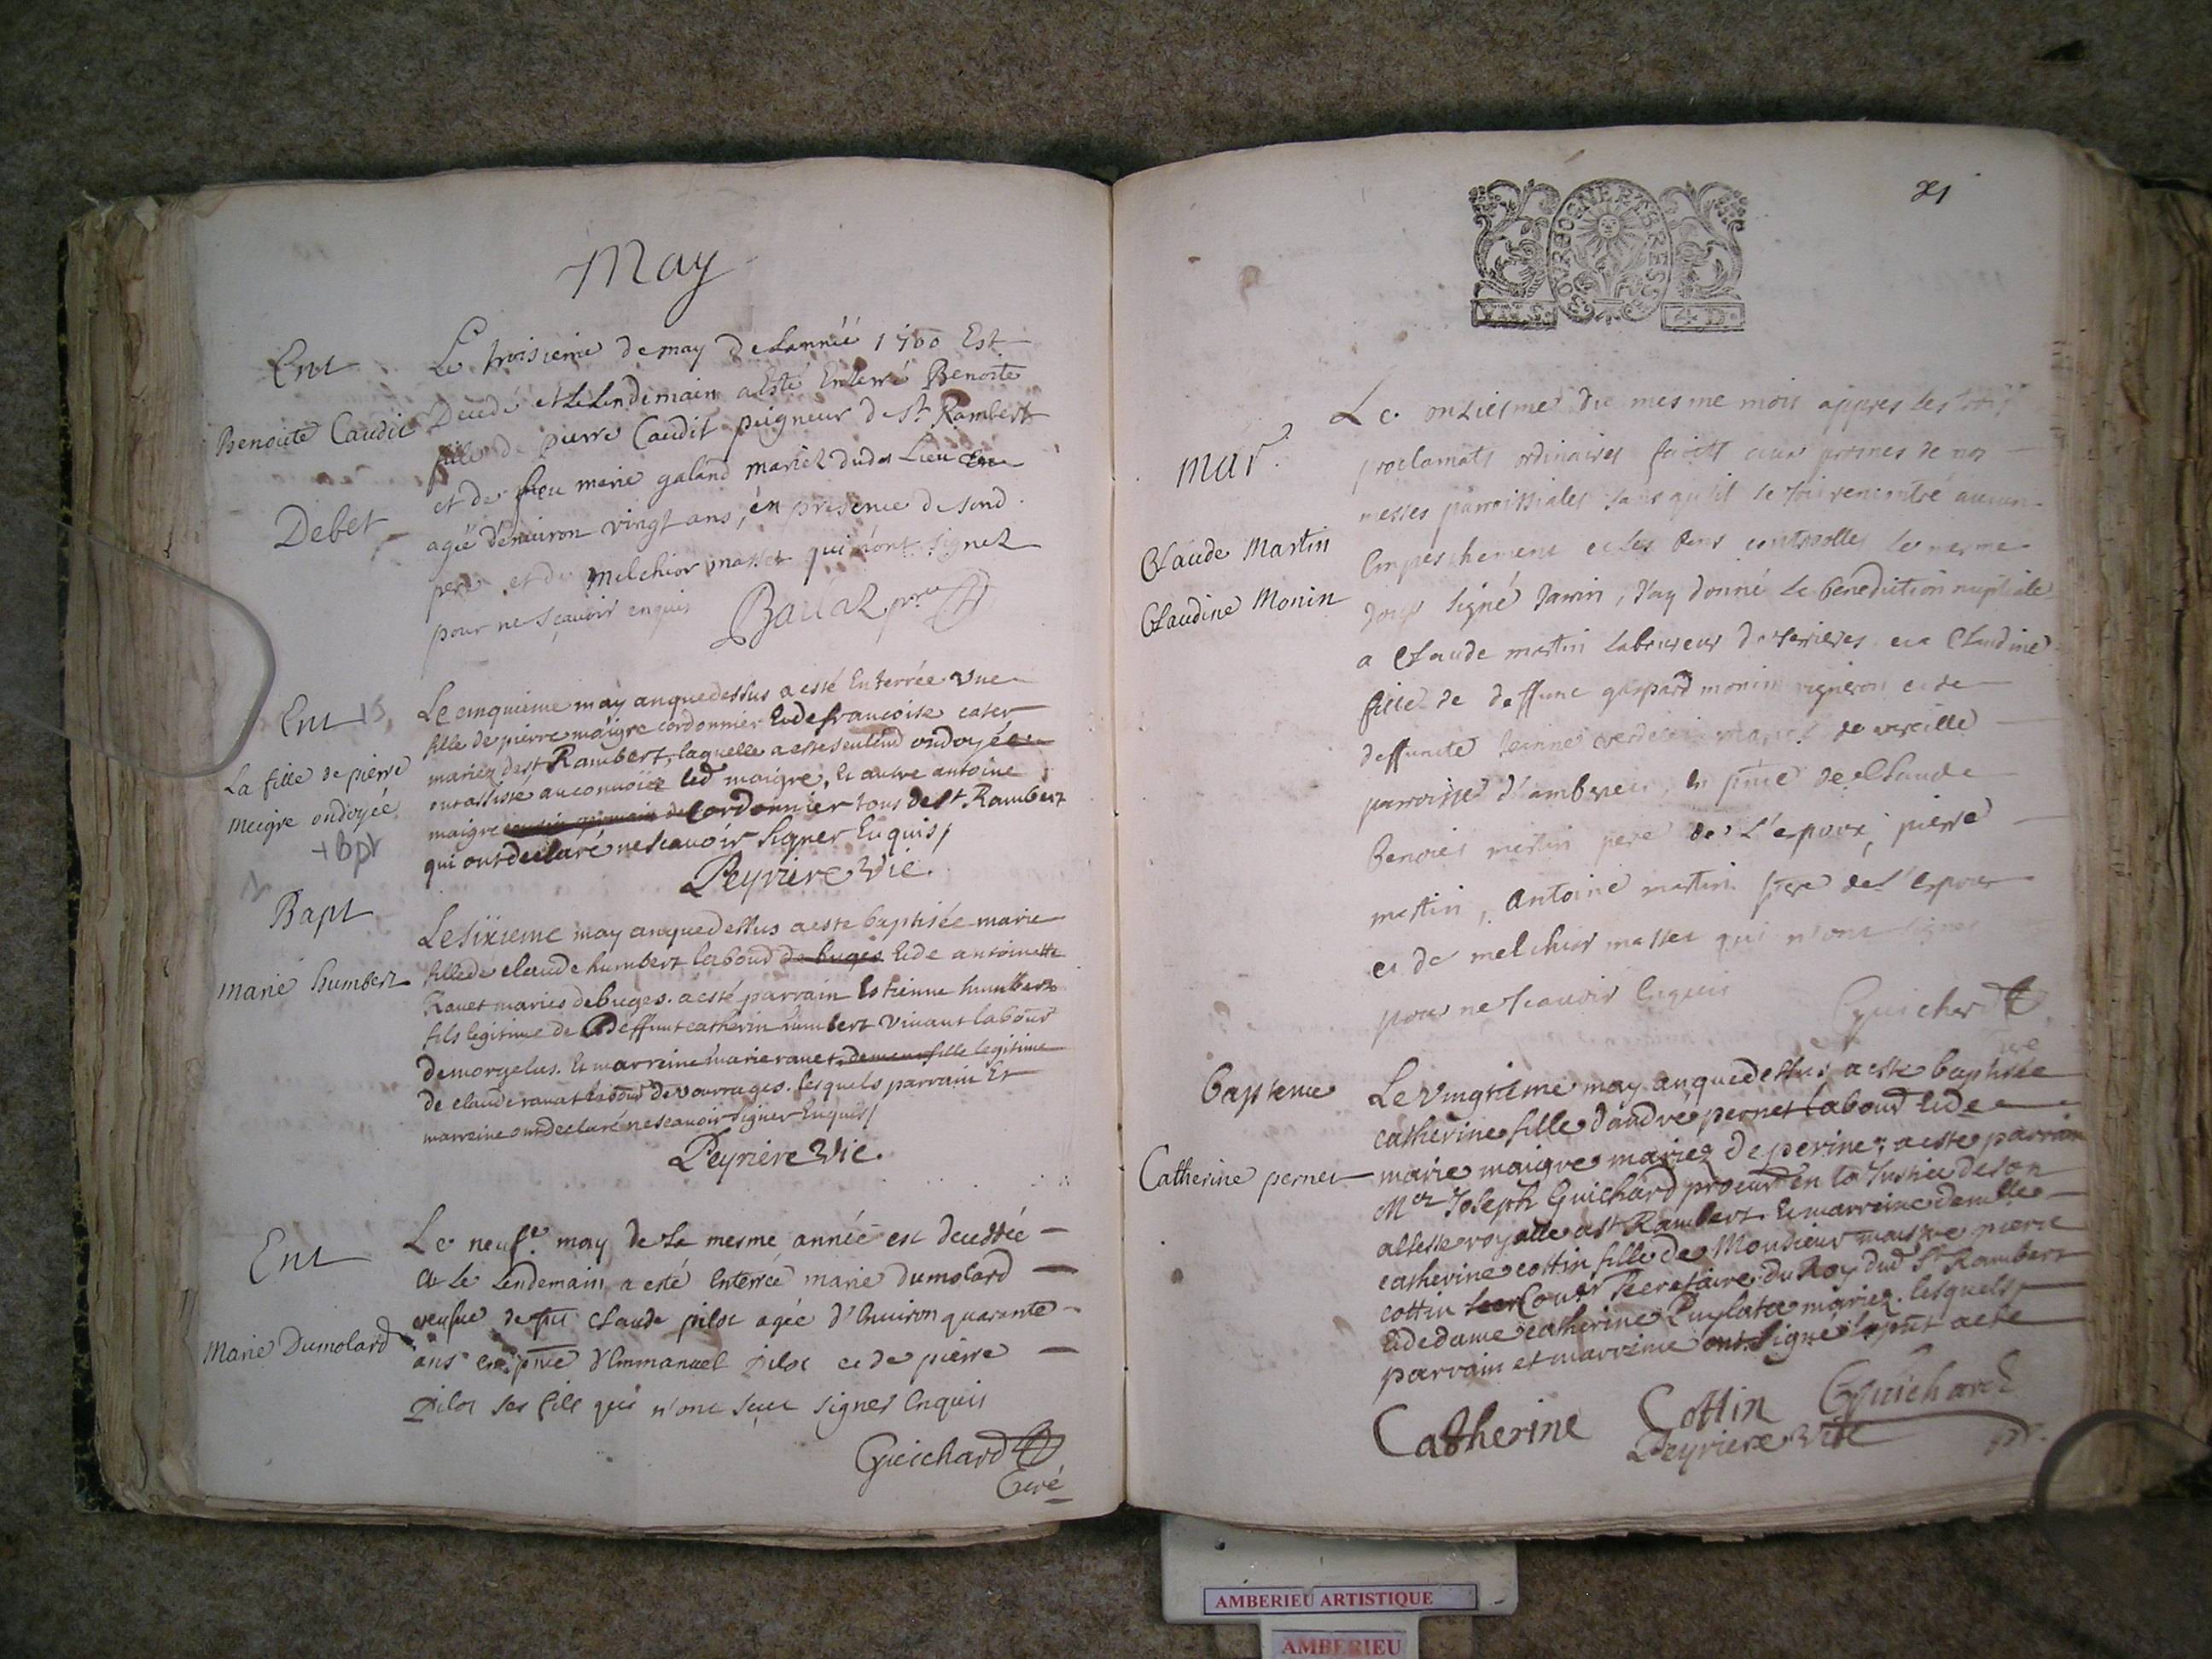 May
Ent
Benoite Caudit
Debet
Le troisieme de may de Lannéé 1700 Est
Decedé et le Lendemain a esté Enterré Benoite
fille de pierre Caudit peigneur de St Rambert
et de feu marie galand mariez dud Lieu
ageé d'environ vingt ans, en presence de sond
pere et de Melchior masset qui n'ont signez
pour ne sçavoir enquis
Ent 13
La fille de pierre
Meigre ondoyée
+ Bpt
Le cinquieme may an que dessus a esté Enterrée une
fille de pierre maigre cordonnier Et de francoise cater
mariez de st Rambert, laquelle a esté seulemd ondoyée
ont assisté au convoier led maigre, Et autre antoine
maigre cordonnier tous de st Rambert
qui ont declaré ne scavoir signer Enquis /
Peyriere Vic.
Bapt
Marie humbert
Le sixieme may an que dessus a esté baptisée marie
fille de claude humbert laboud de buges Et de antoinette
Ravet mariés de buges. a esté parrain Estienne humbert
fils legitime de deffunt catherin humbert vivant labour
demorgelus. Et marreine marie ravet, fille legitime
de claude ravat labour de vourrages. lesquels parrain Et
marreine ont declaré ne scavoir signer Enquis /
Peyriere Vic.
Ent
Marie Dumolard
Le neufe may de La mesme année est decedée
et Le Lendemain a esté Enterrée marie dumolard
veufue de fut Claude pilot agée d'Environ quarante
ans en pnce d'Emmanuel Pilot et de pierre
Pilot ses fils qui n'ont sceu signer Enquis
Guichard
Curé
21
BOURGOGNE ET BRESSE
4 D.
Mar.
Claude Martin
Claudine Monin
Le onziesme du mesme mois appres les trois
proclamats ordinaires faicts aux prosnes de nos
messes parroissiales sans qu'il se soit rencontré aucun
Empeschement et les bans controlles le mesme
jour signé Janin, J'ay donné La benediction nuptiale
a Claude martin Laboureur de et a Claudine
fille de deffunt gaspard monin vigneron et de
deffuncte Jeanne mariés de vareille
parroisse d'ambrieu, En pnce de Claude
Benoist martin pere de L'epoux, pierre
martin, Antoine martin frere de L'epoux
et de melchior masset qui n'ont signer
pour ne scavoir Enquis
Guichard
bapteme
Catherine pernet
Le vingtieme may an que dessus a esté baptisée
catherine fille d'andré pernet laboud Et de
marie maigre mariez de perine; a esté parrain
Mer Joseph Guichard procur en la Justice de son
altesse royalle a st Rambert. Et marreine demlle
catherine cottin fille de Monsieur maistre pierre
cottin secretaire du Roy dud St Rambert
Et de dame catherine mariez. lesquels
parrain et marreine ont signé le pnt acte
Catherine Cottin Guichard
Peyriere Vic
pr.
AMBERIEU ARTISTIQUE
AMBERIEU